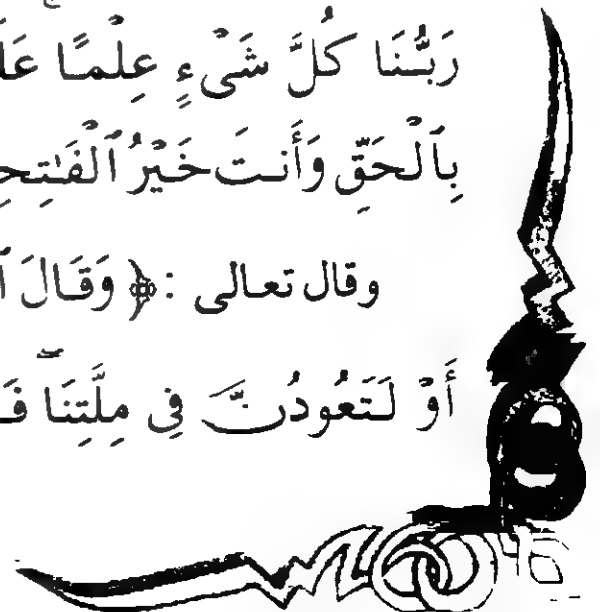 رَبُّنَا كُلَّ شَىْءٍ عِلْمًا
بِٱلْحَقِّ وَأَنتَ خَيْرُ ٱلْفَٰتِحِ
وقال تعالى : ﴿ وَقَالَ
أَوْ لَتَعُودُنَّ فِى مِلَّتِنَا